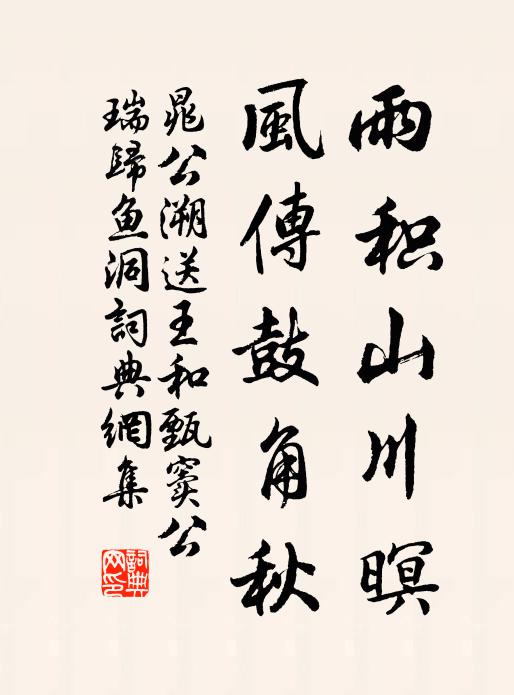 雨积山川暝
風傳鼓角秋
晁公溯送王和甄窦公
瑞歸鱼洞詞典網集
詞典网印